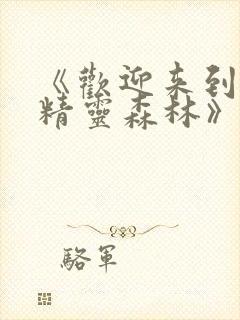 《歡迎来到
精靈森林》
駱軍